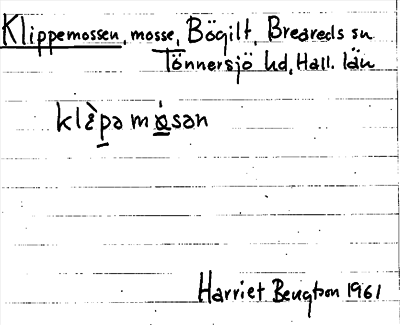 Klippemossen, mosse, Bögilt, Breareds sn
Tönnersjö hd, Hall. län
klὲpə mɷ́sən
Harriet Bengtson 1961